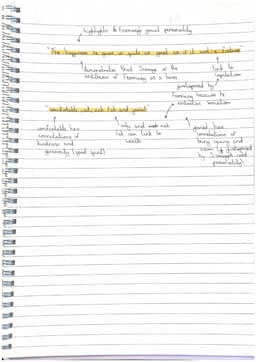 highlights Fezziwig's jovial personality
"The happiness he gives is quite as great as if it cost a fortune"
demonstrates that Scrooge is the
antithesis of Fezziwig as a boss
link to
juxtaposed by
Fezziwig because he
"comfortable, oil, rich, fat and jovial"
comfortable has
connotations of
kindness and
generosity (good spirit)
oily and
fat can link to
wealth
jovial have
connotations of
being caring and
warm (juxtaposed
by Scrooge's cold
personality)